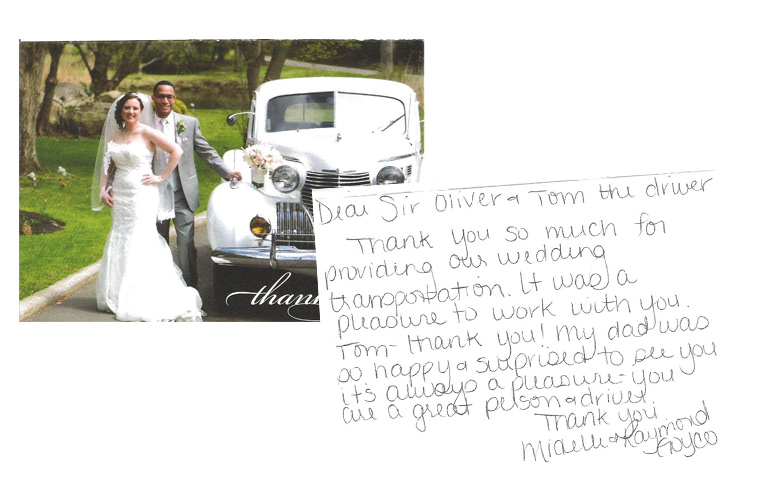 than
Dear Sir Oliver & Tom the driver
Thank you so much for
providing our wedding
transportation. It was a
pleasure to work with you.
Tom- thank you! My dad was
so happy & surprised to see you
it's always a pleasure- you
are a great person & driver.
Thank you
Michelle & Raymond